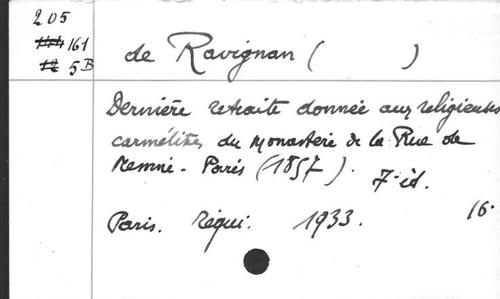 205
161
5B
de Ravignan (          )
Dernière retraite donnée aux religieuses
carmélites du Monastère de la Rue de
Messine - Paris (1857).
7e éd.
Paris. Téqui. 1933.
16°